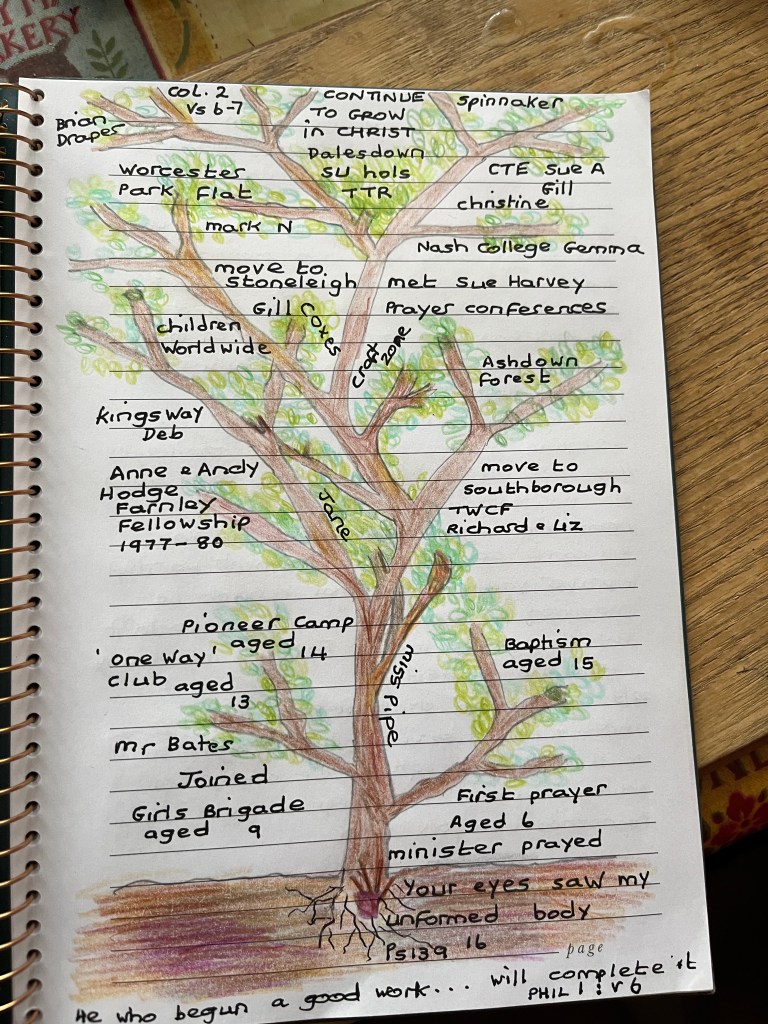 KERY
COL. 2
Vs 6-7
CONTINUE
TO GROW
in CHRIST
Spinnaker
Brian
Draper
Dalesdown
SU hols
TTR
Worcester
Park Flat
CTE Sue A
Gill
christine
mark N
Nash College Gemma
move to
Stoneleigh
met Sue Harvey
Gill Coxes
Prayer conferences
children
Worldwide
Craft
zone
Ashdown
Forest
Kingsway
Deb
Anne & Andy
Hodge
Farnley
Fellowship
1977-80
Jane
move to
Southborough
TWCF
Richard & Liz
Pioneer Camp
aged 14
'One Way'
club aged
13
miss Pipe
Baptism
aged 15
mr Bates
Joined
Girls Brigade
aged 9
First prayer
Aged 6
minister prayed
Your eyes saw my
unformed body
Ps139 16
page
He who begun a good work... will complete it
PHIL 1: v6